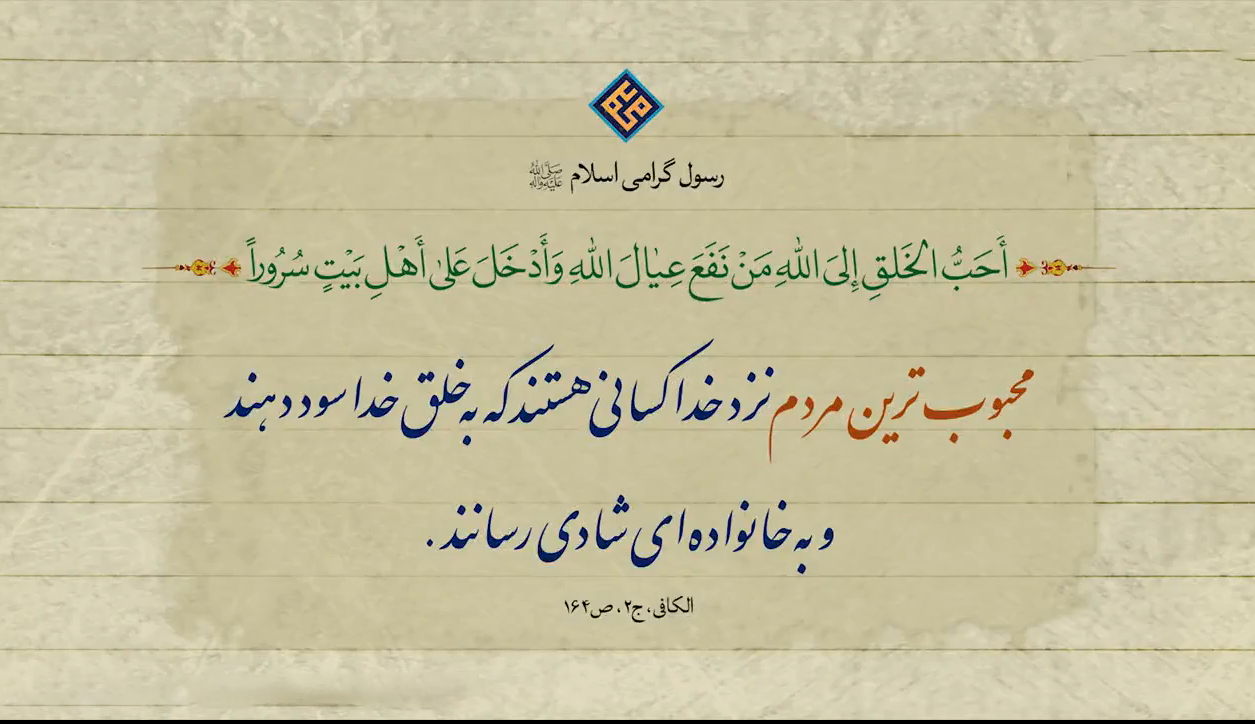 رسول گرامی اسلام ﷺ
أَحَبُّ الخَلقِ إِلیَ اللهِ مَنْ نَفَعَ عِیٰالَ اللهِ وَأَدْخَلَ عَلیٰ أَهْلِ بَیْتٍ سُرُوراً
محبوب ترین مردم نزد خدا کسانی هستند که به خلق خدا سود دهند
و به خانواده ای شادی رسانند .
الکافی، ج۲، ص۱۶۴